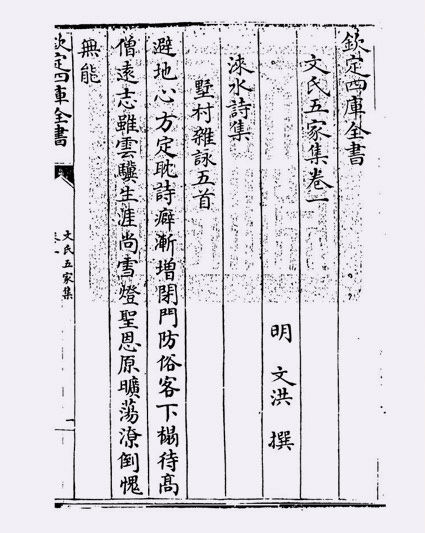 欽定四庫全書
文氏五家集卷一
明 文洪 撰
涞水詩集
墅村雜詠五首
避地心方定耽詩癖漸增閉門防俗客下榻待髙
僧遠志雖雲驥生涯尚雪燈聖恩原曠蕩潦倒愧
無能
欽定四庫全書
文氏五家集
卷一